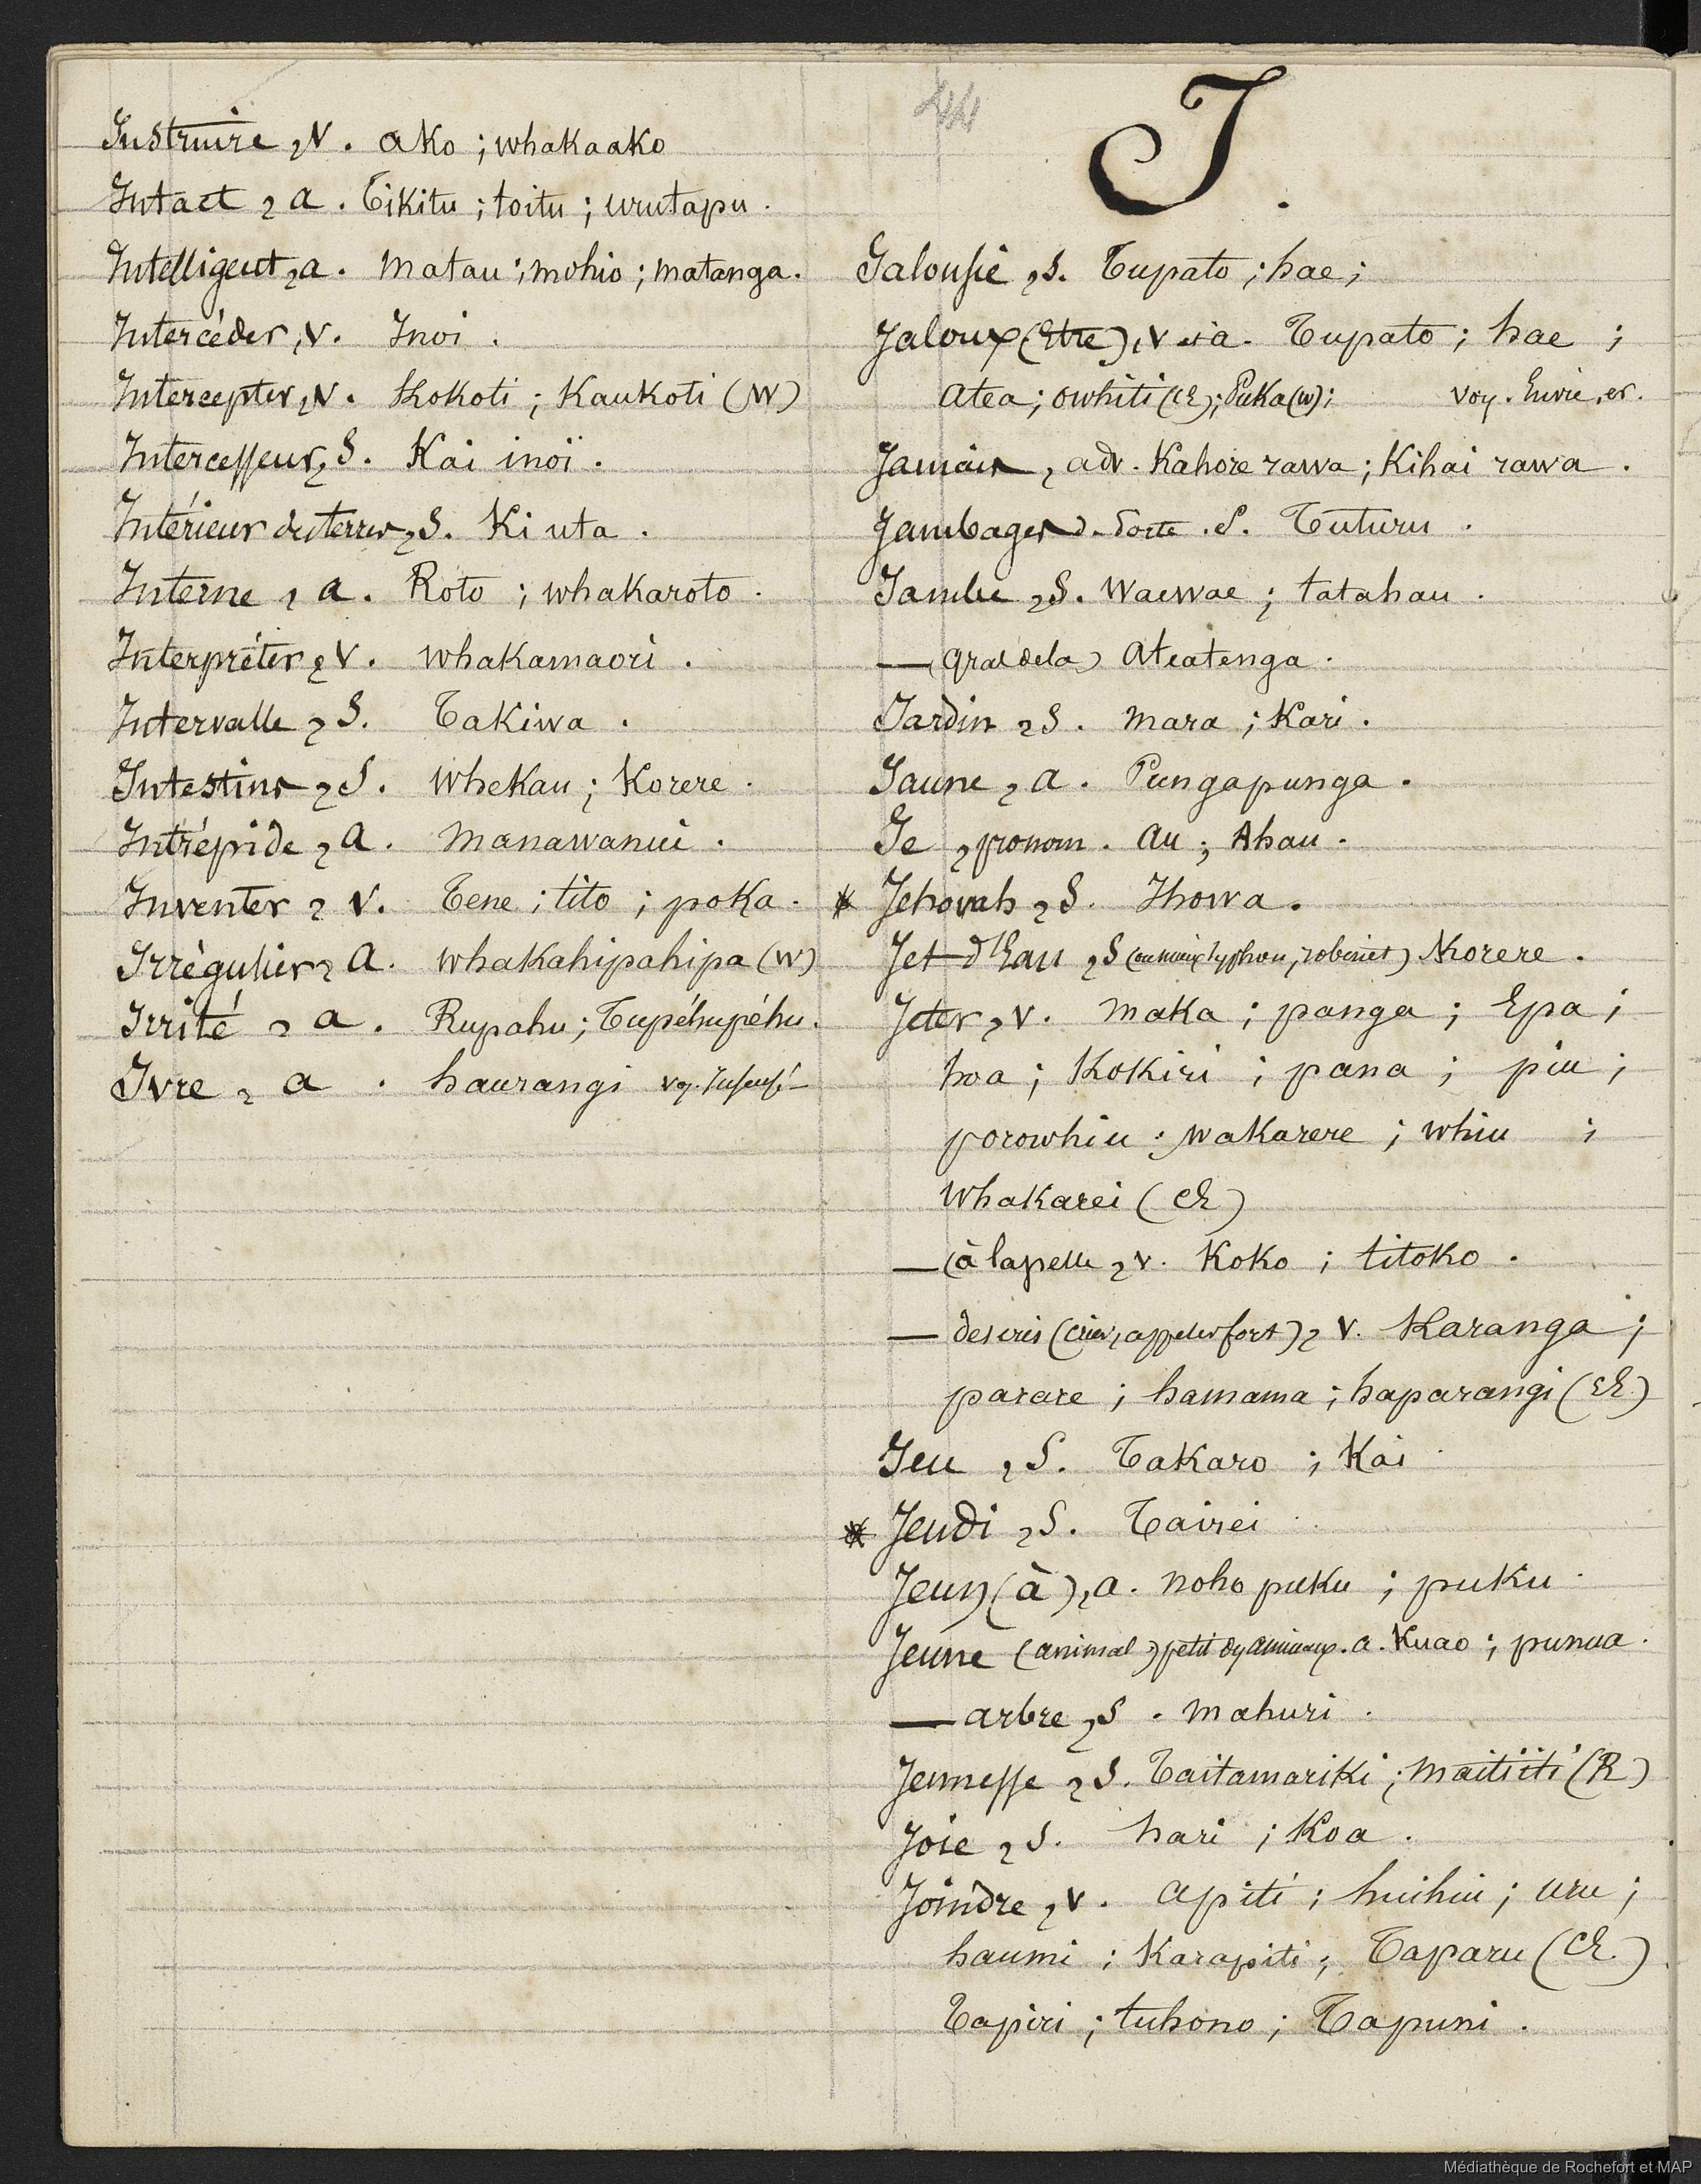 Instruire, v. ako ; whakaako
Intact, a. Tikitu ; toitu ; urutapu.
Intelligent, a. matau ; mohio ; matanga.
Intercéder, v. Inoi.
Intercepter, v. Kokoti ; Kaukoti (W)
Intercesseur, S. Kai inoï.
Intérieur des terres, S. Ki uta.
Interne, a. Roto ; whakaroto.
Interpréter, v. whakamaori.
Intervalle, S. Takiwa.
Intestins, S. whekau ; Korere.
Intrépide, a. manawanui.
Inventer, v. Tene ; tito ; poka.
Irrégulier, a. whakahipahipa (W)
Irrité, a. Rupahu ; Tupéhupéhu.
Ivre, a. haurangi voy. Insensé
44
J.
Jalousie, s. Tupato ; hae ;
Jaloux (Etre), v et a. Tupato ; hae ;
atea ; owhiti (Ch) ; Puka (W) ; voy. Envie, er.
Jamais, adv. Kahore rawa ; Kihai rawa.
Jambages d. Porte. S. Tuturu.
Jambe, S. waewae ; tatahau.
— (gras de la) ateatenga.
Jardin, S. mara ; Kari.
Jaune, a. Pungapunga.
Je, pronom. au ; Ahau.
* Jehovah, S. Ihowa.
Jet d'Eau, S (ou mieux syphon, robinet) Korere.
Jeter, v. maka ; panga ; Epa ;
hoa ; Kokiri ; pana ; piu ;
porowhiu ; wakarere ; whiu ;
whakarei (Ch)
— (à la pelle, v. Koko ; titoko.
— des cris (crier, appeler fort), v. Karanga ;
parare ; hamama ; haparangi (Ch)
Jeu, S. Takaro ; Kai
* Jeudi, S. Tairei
Jeun (à), a. noho puku ; puku.
Jeune (animal) petit d'animaux. a. Kuao ; punua.
— arbre, S. mahuri.
Jeunesse, S. Taitamariki ; maitiiti (R)
Joie, S. hari ; Koa.
Joindre, v. apiti ; huihui ; uru ;
haumi ; Karapiti ; Taparu (Ch.)
Tapiri ; tuhono ; Tapuni.
Médiathèque de Rochefort et MAP